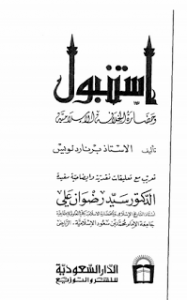 إستنبول
وحضارة الخلافة الإسلامية
تأليف
الأستاذ برنارد لويس
تعريب مع تعليقات نقدية وإضافية مفيدة
الدكتور سيد رضوان علي
بجامعة الإمام محمد بن سعود الإسلامية، الرياض
الدار السعودية
للنشر والتوزيع